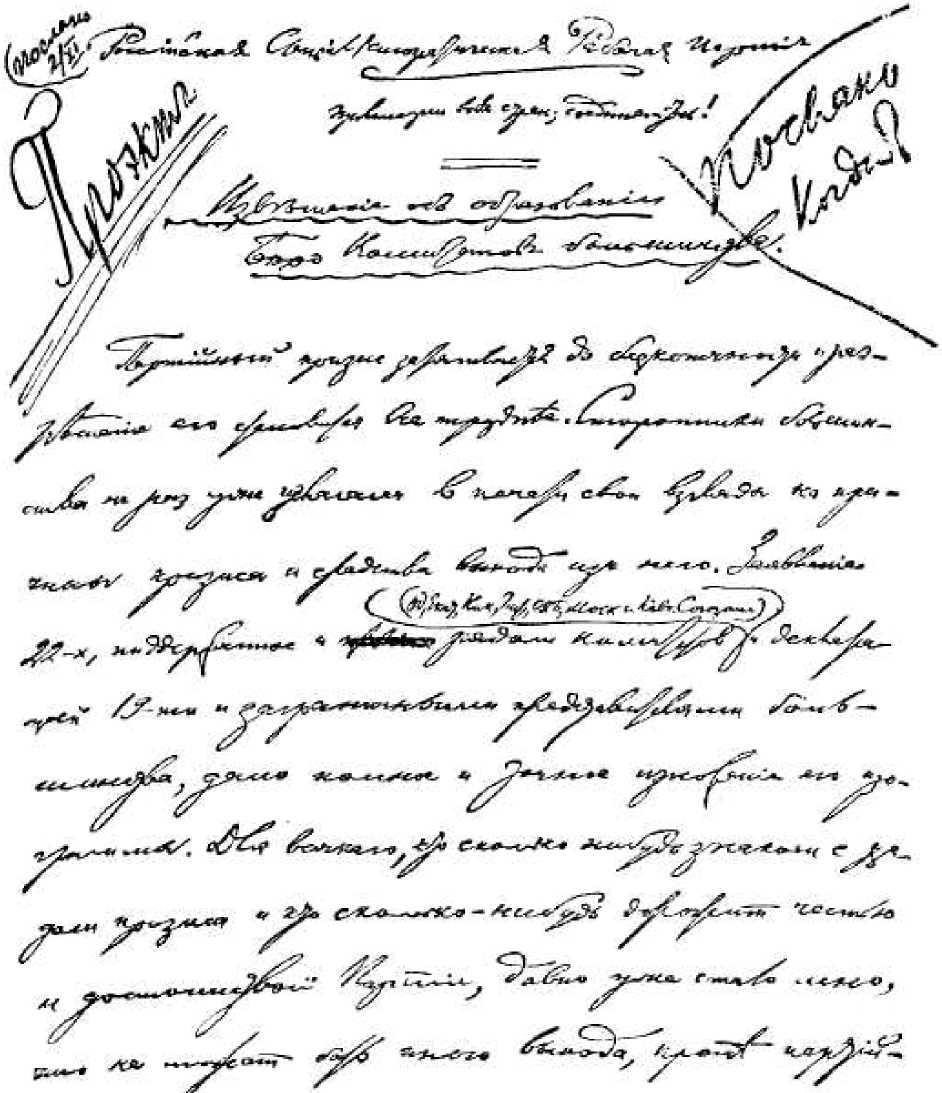 (послано
2/XI)
Российская Социалдемократическая Рабочая Партія
Пролетарии всех стран, соединяйтесь!
Проэктъ
Послано
Когда?
Извѣщеніе объ образованіи
Бюро Комитетовъ большинства.
Партійный кризис затягивается до бесконечности и раз-
рѣшеніе его становится все труднѣе. Сторонники большин-
ства не раз уже излагали в печати свои взгляды на при-
чины кризиса и средства выхода изъ него. Заявленіе
22-х, поддержанное и рядом комитетов и деклара-
цией 19-ти и заграничными представителями боль-
шинства, дало полное и точное изложеніе его про-
граммы. Для всякаго, кто сколько нибудь знаком с хо-
дом кризиса и кто сколько-нибудь дорожит честью
и достоинством Партіи, давно уже стало ясно,
что не может быть иного выхода, кромѣ партій-